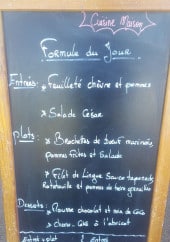 Cuisine Maison
Formule du Jour
Entrées: * Feuilleté chèvre et pommes
* Salade César
Plats: * Brochettes de bœuf marinées,
pommes frites et Salade
* Filet de Lingue Sauce tapenade,
Ratatouille et pommes de terre grenailles
Desserts: * Mousse chocolat et noix de coco
à l'abricot
Entrée plat